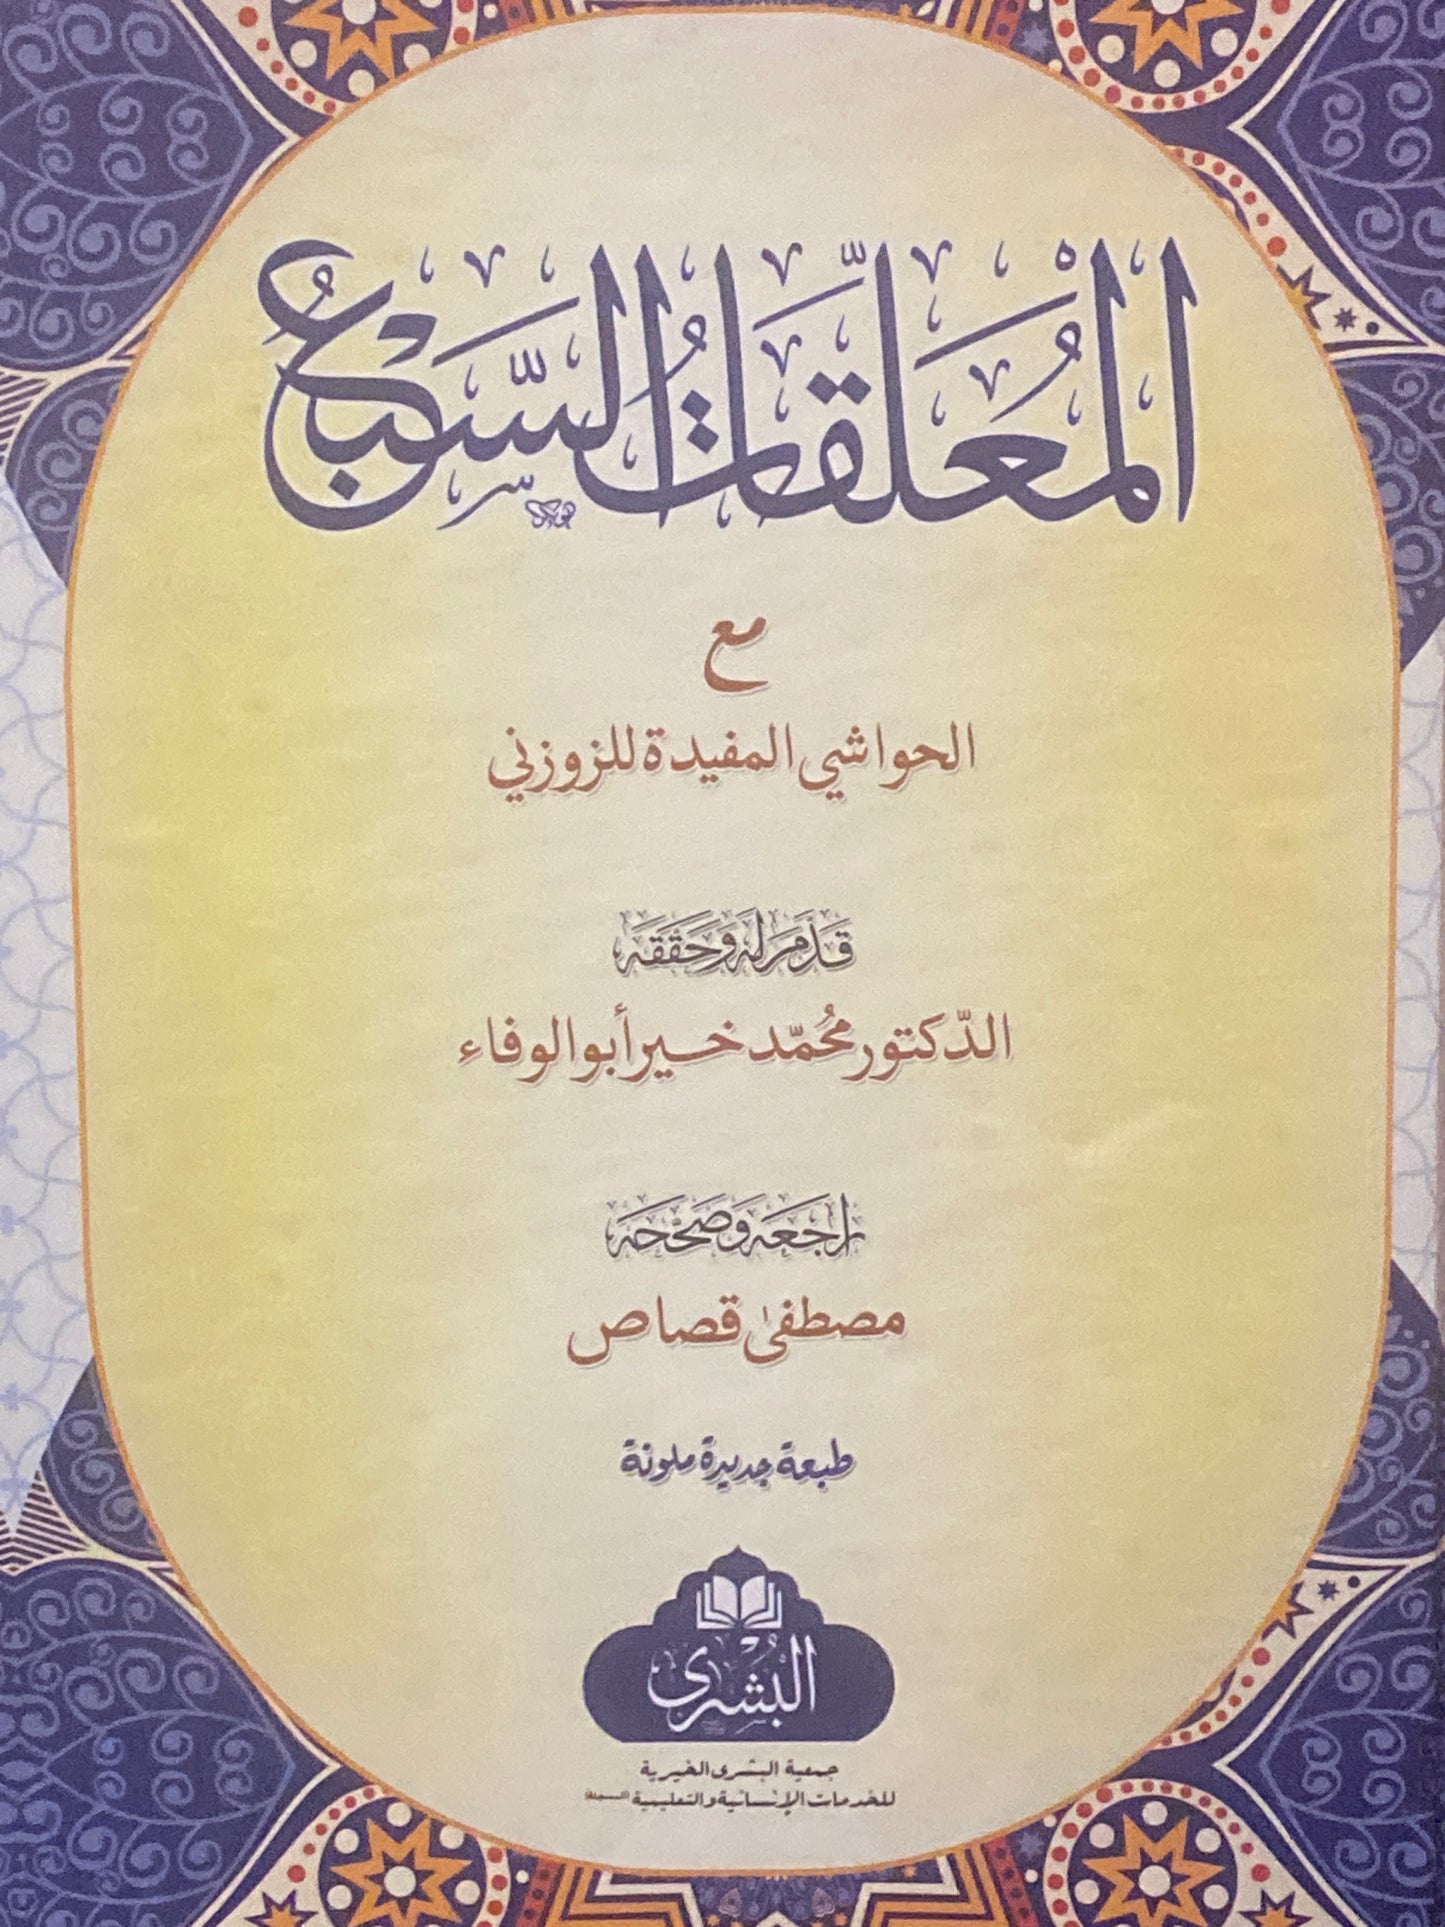 المُعَلَّقَاتُ السَّبْعُ
مع
الحواشي المفيدة للزوزني
قَدَّمَ لَهُ وَحَقَّقَهُ
الدّكتور محُمّد خير أبو الوفاء
رَاجَعَهُ وَصَحَّحَهُ
مصطفىٰ قصاص
طبعة جديدة ملونة
البُشْرى
جمعية البشرى الخيرية
للخدمات الإنسانية والتعليمية (المسجلة)